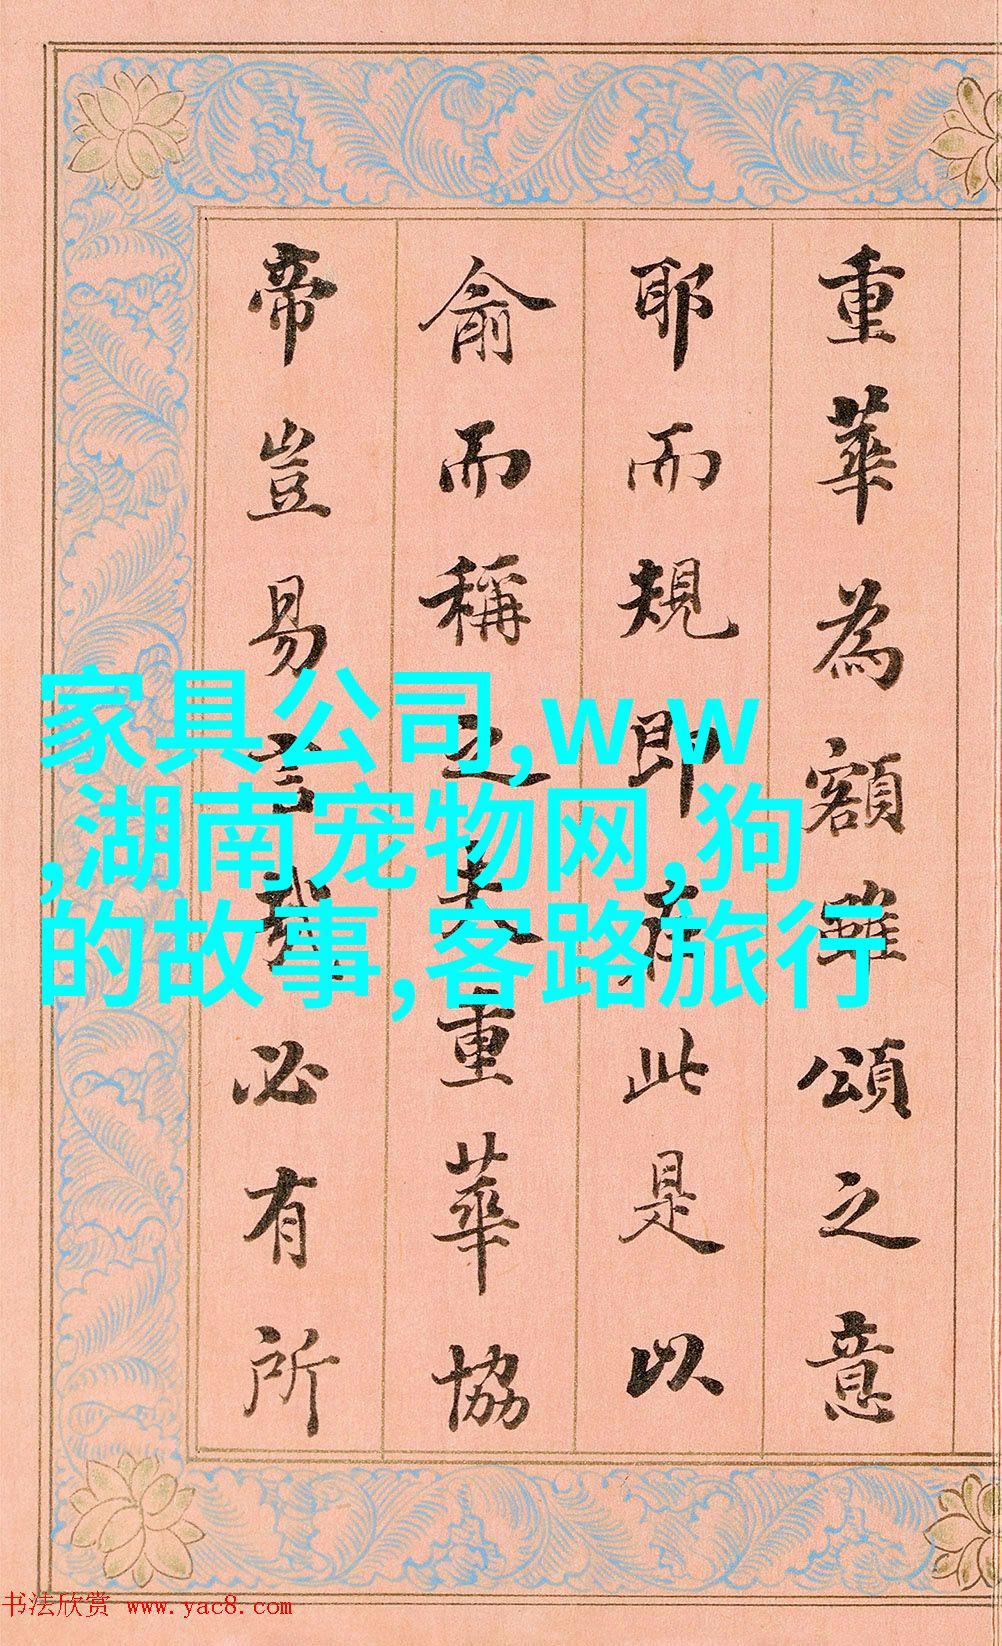 重華為額雖頌之意
耶而規即此是以
俞而稱之重華協
帝豈易言哉必有所
家具公司,w w
,湖南宠物网,狗
的故事,客路旅行
书法欣赏 www.yac8.com